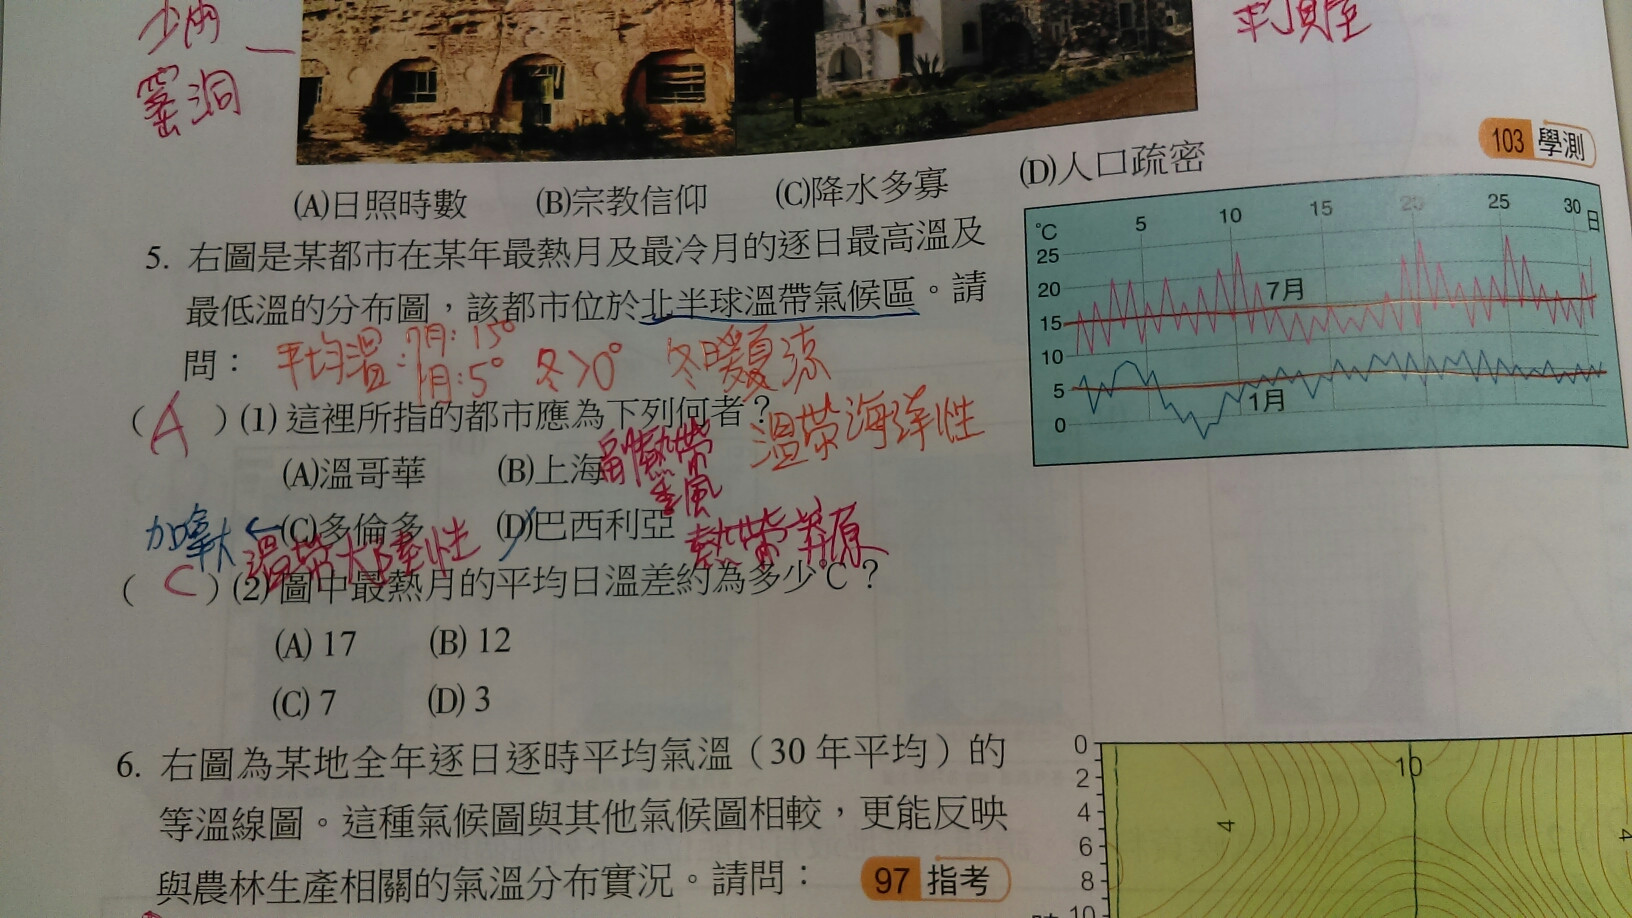 少雨
窰洞
平頂屋
103 學測
(A)日照時數 (B)宗教信仰 (C)降水多寡 (D)人口疏密
5. 右圖是某都市在某年最熱月及最冷月的逐日最高溫及
最低溫的分布圖，該都市位於北半球溫帶氣候區。請
問：
平均溫：7月：15° 冬>0° 冬暖夏涼
1月：5°
( A ) (1) 這裡所指的都市應為下列何者？
溫帶海洋性
(A)溫哥華 (B)上海
副熱帶
季風
加拿大←(C)多倫多 (D)巴西利亞
溫帶大陸性 熱帶莽原
( C ) (2) 圖中最熱月的平均日溫差約為多少℃？
(A) 17 (B) 12
(C) 7 (D) 3
5 10 15 20 25 30 日
℃
25
20
15
10
5
0
7月
1月
6. 右圖為某地全年逐日逐時平均氣溫（30 年平均）的
等溫線圖。這種氣候圖與其他氣候圖相較，更能反映
與農林生產相關的氣溫分布實況。請問：
97 指考
0
2
4
6
8
10
10
4
4
時